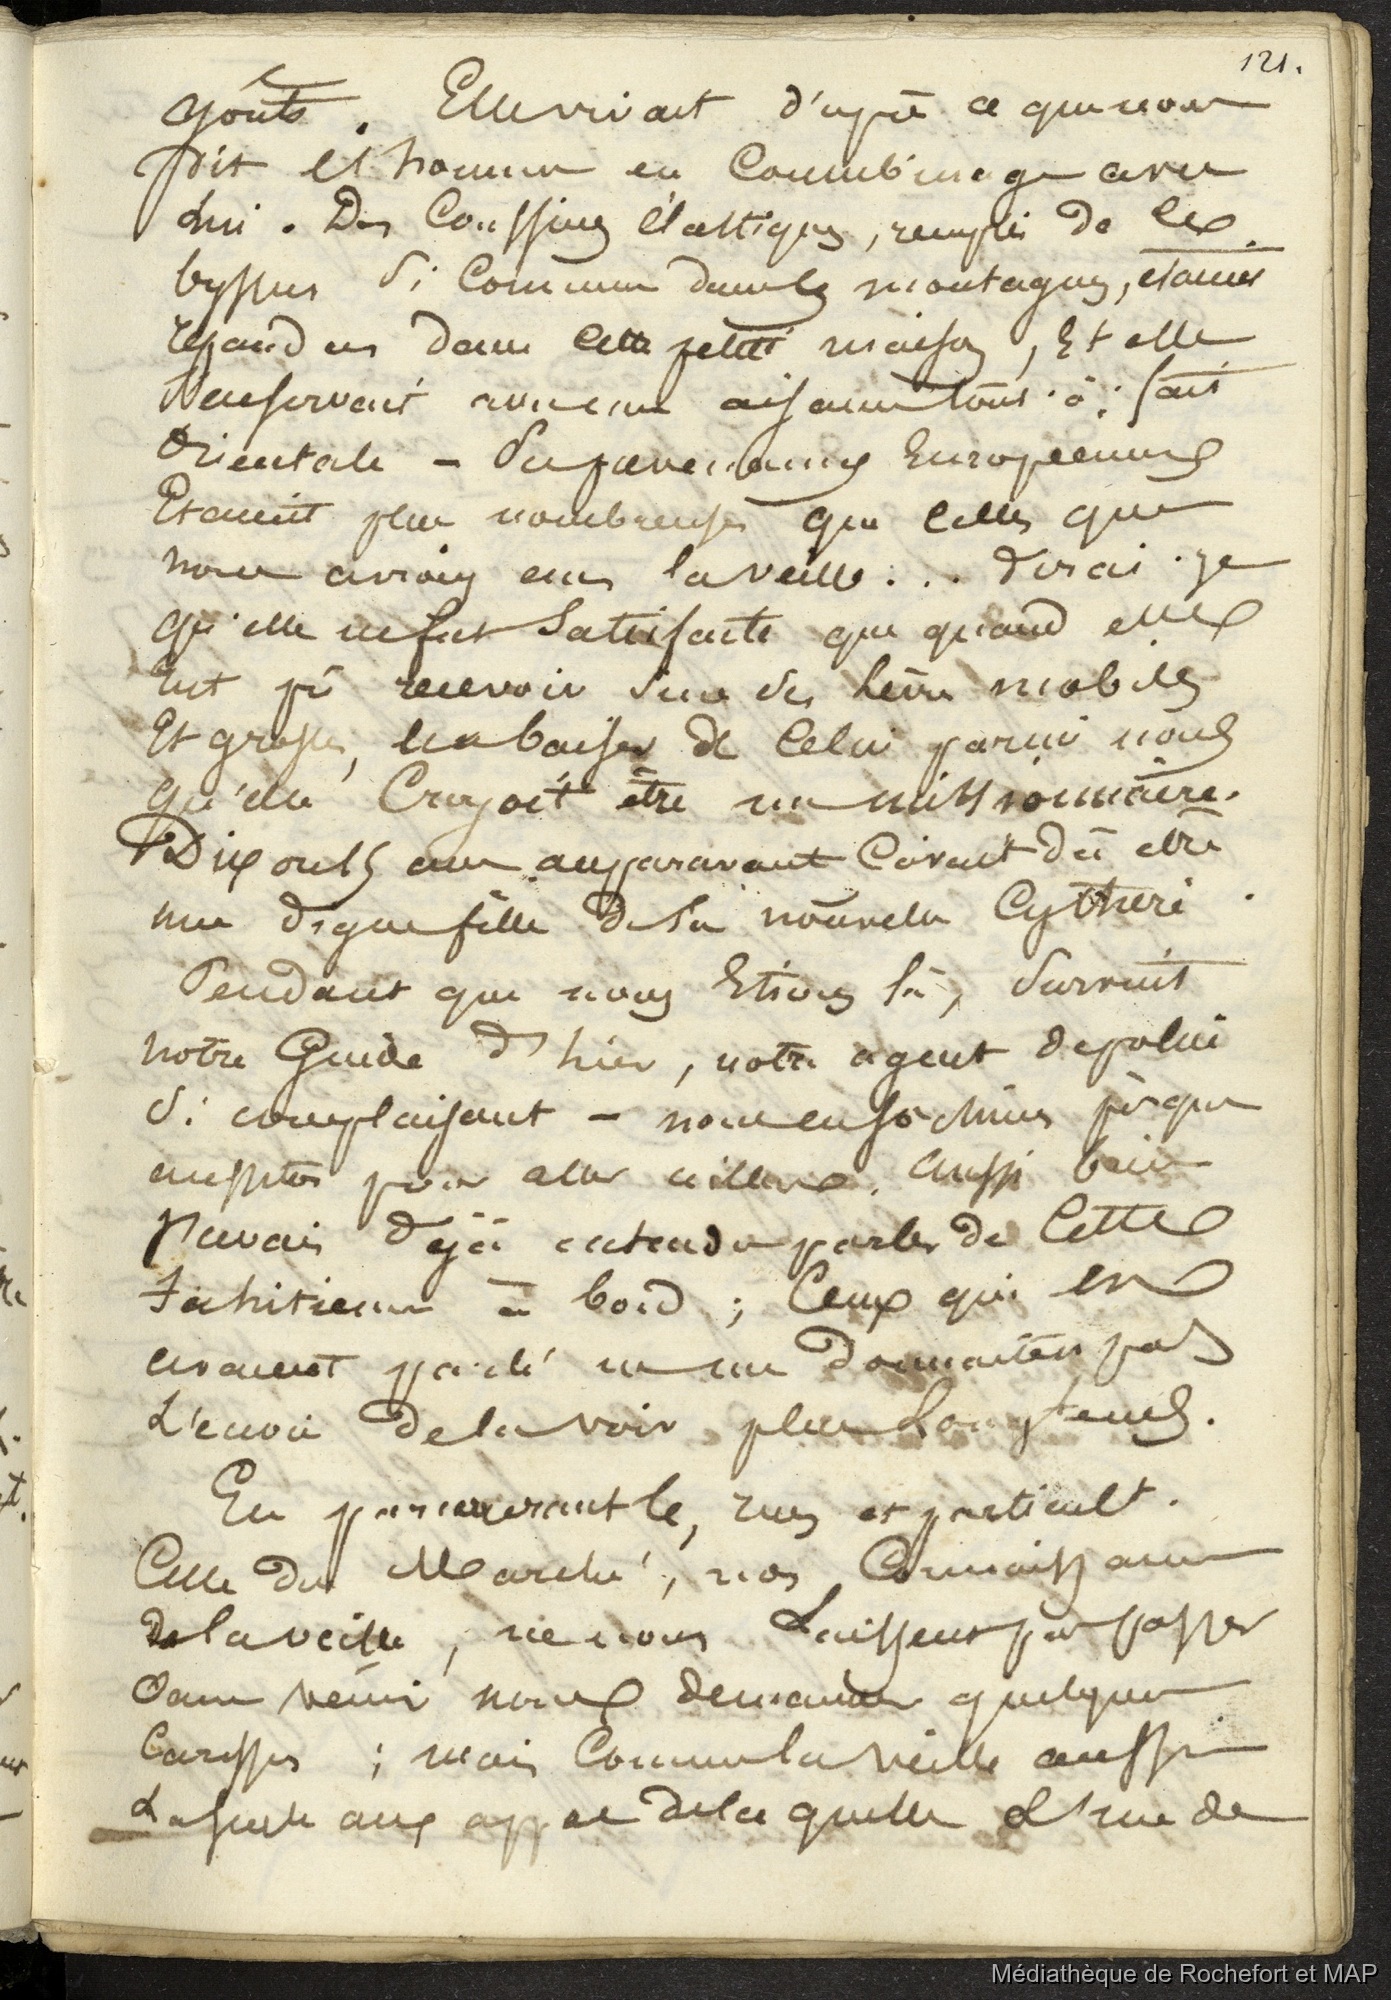 121.
goûts. Elle vivait d'après ce que nous
dit cet homme en Concubinage avec
lui. Des Coussins élastiques, remplis de ce
byssus si Commun dans les montagnes, étaient
répandus dans cette petite maison, Et elle
s'en servait avec une aisance tout-à-fait
Orientale - Ses prévenances Européennes
Etaient plus nombreuses que celles que
nous avions eues la veille... dirai-je
qu'elle ne fut Satisfaite que quand elle
Eut pû recevoir sur ses lèvres mobiles
Et grosses, un baiser de Celui parmi nous
qu'elle Croyoit être un missionnaire.
Dix ou 15 ans auparavant C'avait dû être
une digne fille de la nouvelle Cythère.
Pendant que nous Etions là, Survint
notre Guide d'hier, notre agent de police
si complaisant - nous en sortimes presque
aussitôt pour aller ailleurs. Aussi bien
j'avais déjà entendu parler de Cette
Tahitienne à bord ; Ceux qui en
avaient parlé ne me donnaient pas
L'envie de la voir plus Longtems.
En parcourant les rues et particult.
Celle du Marché, nos Connaissances
de la veille, ne nous Laissent pas passer
sans venir nous demander quelques
Caresses ; mais Comme la veille aussi
La seule aux appas de laquelle L'un de